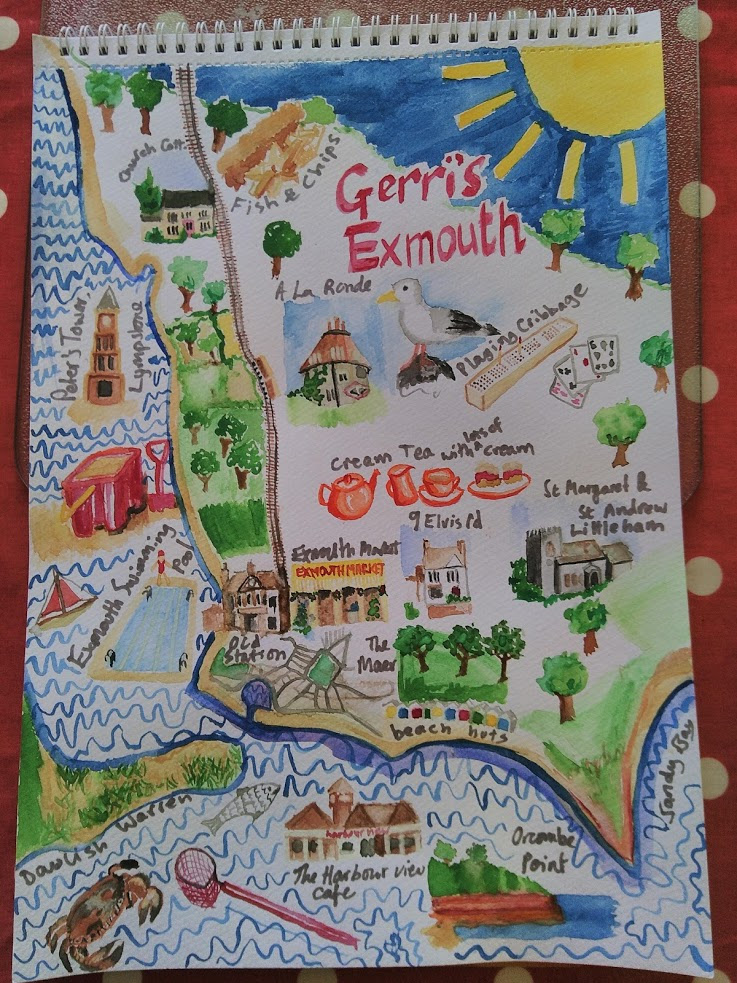 Church Cott.
Fish & Chips
Gerri's
Exmouth
A La Ronde
Playing Cribbage
Peter's Tower,
Lympstone
Cream Tea with lots of cream
9 Elvis Rd
St Margaret &
St Andrew
Littleham
Exmouth Market
EXMOUTH MARKET
Exmouth Swimming
Pool
Old
Station
The
Maer
beach huts
Sandy Bay
Dawlish Warren
harbour view
The Harbour View
Cafe
Orcombe
Point